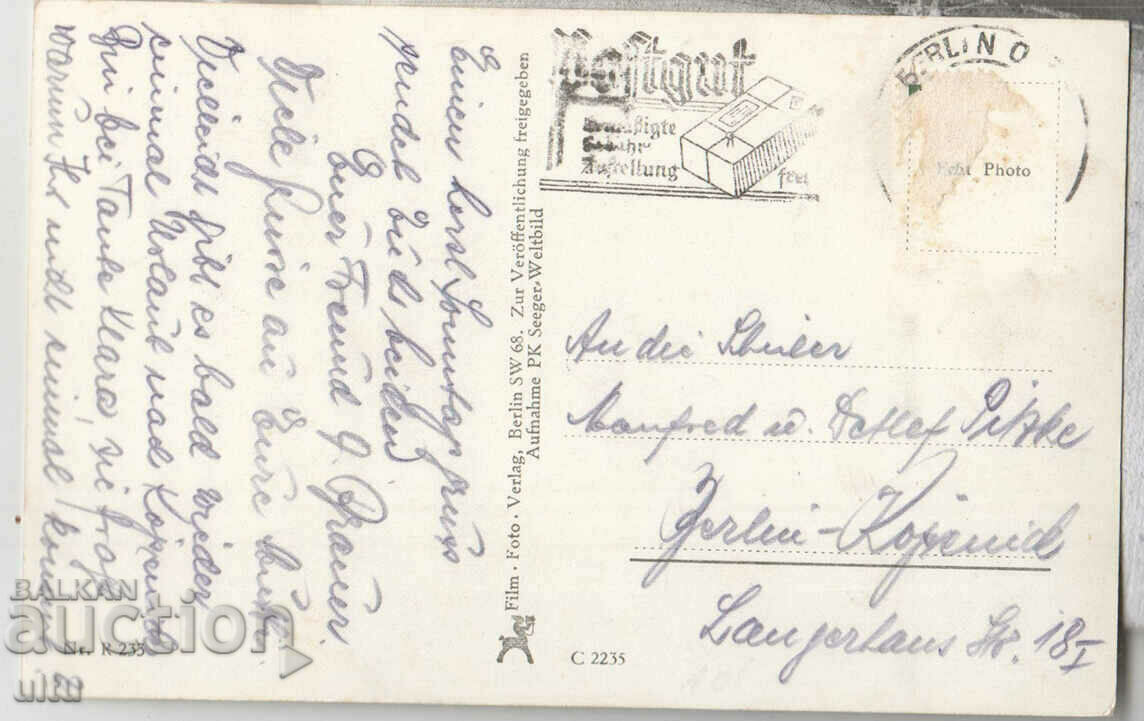 Einen herzl. Sonntagsgruss
sendet Euch beiden
Euer Freund
Viele Grüße an Eure
Vielleicht gibt es bald wieder
einmal Urlaub nach Köpenick
bei Tante Klara, sie
warum Ihr nicht einmal kommt
Film · Foto · Verlag, Berlin SW 68. Zur Veröffentlichung freigegeben
Aufnahme PK Seeger-Weltbild
Postgut
ermäßigte
Gebühr
Zustellung frei
BERLIN O
Echt Photo
An die Schüler
Manfred u. Detlef
Berlin-Köpenick
Langerhans Str. 18 I
Nr. R 233
C 2235
BALKAN
auction